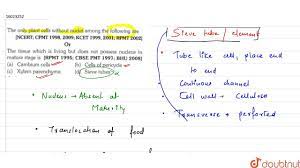 The only plant cells without nuclei among the following are
[NCERT, CBSE 1998, 2009, KCET 1999, 2001; RPMT 2002]
Or
The tissue which is living but does not possess nucleus in
mature stage is [RPMT 1996; CBSE PMT 1997; BHU 2008]
(a) Cambium cells
(b) Cells of pericycle
(c) Xylem parenchyma
(d) Sieve tubes
• Nucleus → Absent at
Maturity
• Translocation of food
Sieve tube / element
• Tube like cell, place end
to end
• Continuous channel
• Cell wall → Cellulose
• Transverse → perforated
doubtnut